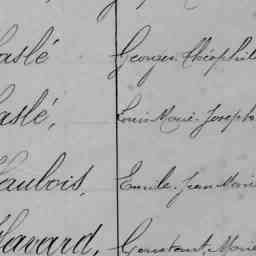 aslé Georges Théophil
aslé, Louis Marie Joseph
aubois, Emile Jean Marie
Havard, Constant, Marie